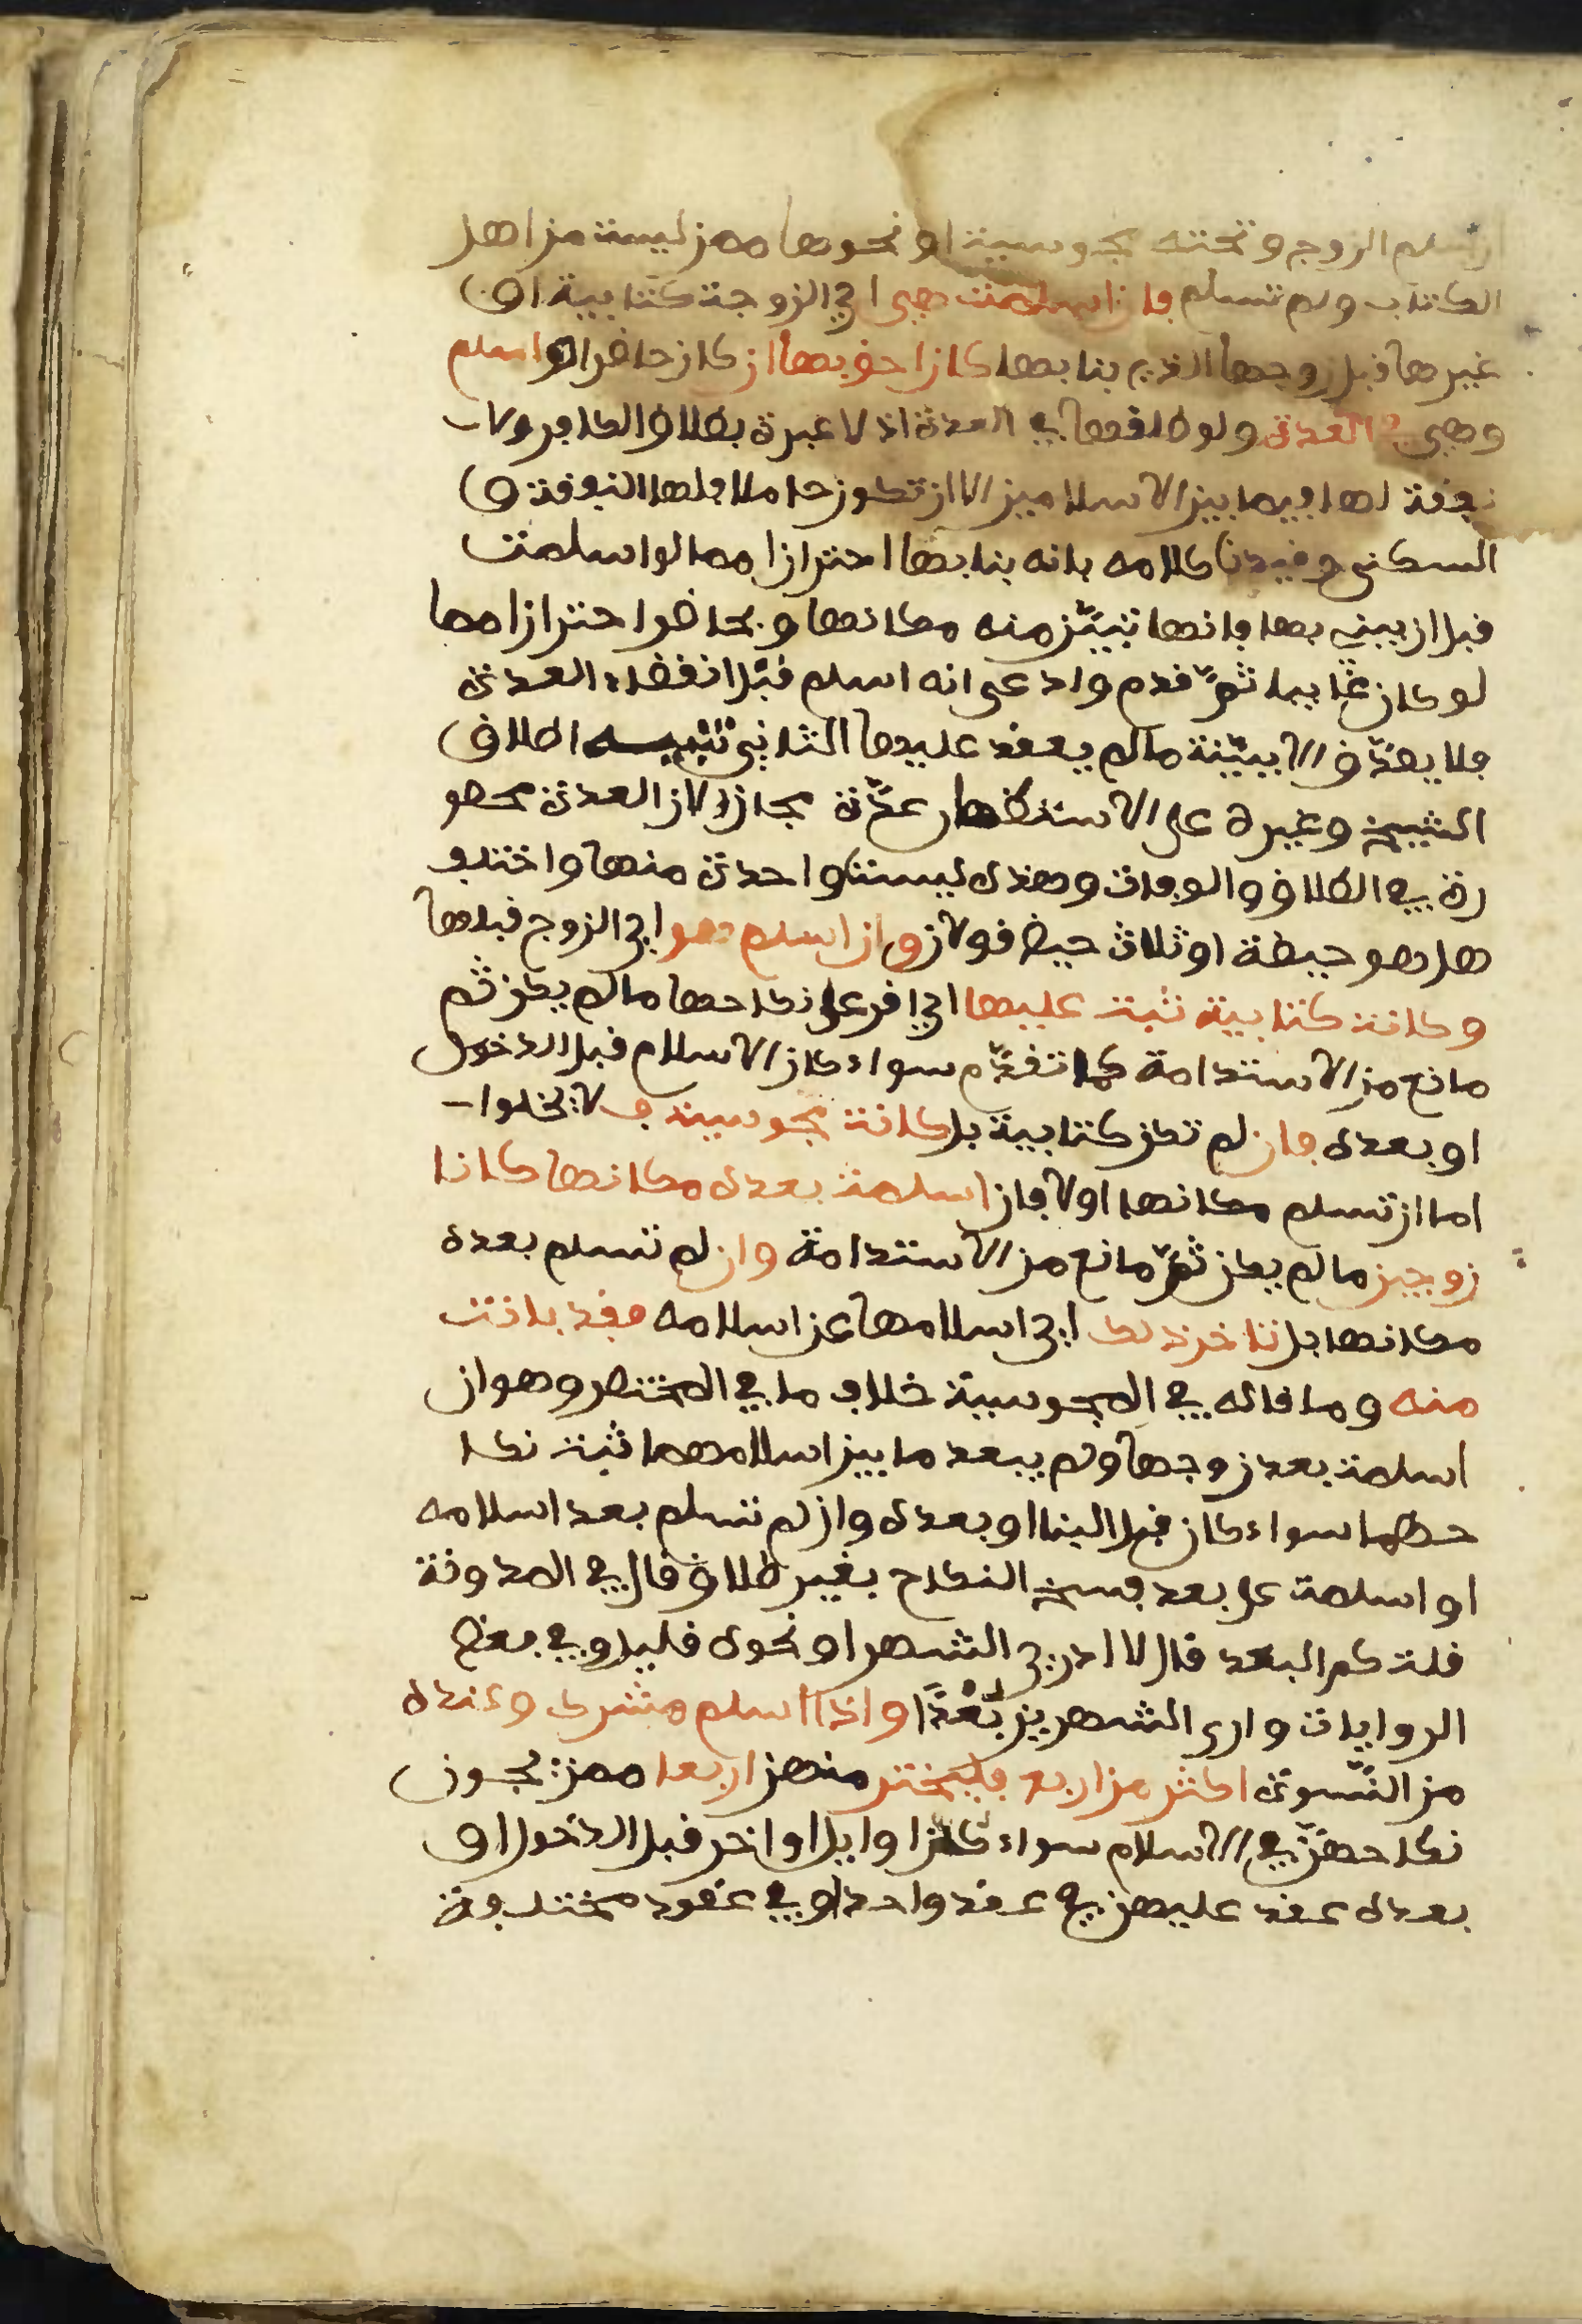 اسلم الزوج وتحته مجوسية او نحوها ممن ليست من اهل
الكتاب ولم تسلم فان اسلمت هي اي الزوجة كتابية او
غيرها قبل زوجها الذي بنا بها كان احق بها ان كان حاضرا لو اسلم
وهي في العدة ولو طلقها في العدة اذ لا عبرة بطلاق الكافر ولا
نفقة لها فيما بين الاسلامين الا ان تكون حاملا فلها النفقة و
السكنى وقيدنا كلامه بانه بنا بها احترازا مما لو اسلمت
قبل ان يبني بها فانها تبين منه مكانها وبحاضر احترازا مما
لو كان غايبا ثم قدم وادعى انه اسلم قبل انقضاء العدة
فلا يصدق الا ببينة ما لم يعقد عليها الثاني تنبيه اطلاق
الشيخ وغيره على الاستظهار عدة مجاز لان العدة محصو
رة في الطلاق والوفات وهذه ليست واحدة منها واختلف
هل هو حيظة او ثلاث حيض قولان وان اسلم هو اي الزوج قبلها
وكانت كتابية ثبت عليها اي اقر على نكاحها ما لم يكن ثم
مانع من الاستدامة كما تقدم سواء كان الاسلام قبل الدخول
او بعده فان لم تكن كتابية بل كانت مجوسية ف لا يخلوا
اما ان تسلم مكانها اولا فان اسلمت بعده مكانها كانا
زوجين ما لم يكن ثم مانع من الاستدامة وان لم تسلم بعده
مكانها بل تاخر ذلك اي اسلامها عن اسلامه فقد بانت
منه وما قاله في المجوسية خلاف ما في المختصر وهو ان
اسلمت بعد زوجها ولم يبعد ما بين اسلامهما ثبت نكا
حهما سواء كان قبل البنا او بعده وان لم تسلم بعد اسلامه
او اسلمت على بعد فسخ النكاح بغير طلاق قال في المدونة
قلت كم البعد قال لا ادري الشهر او نحوه قليل وفي بعض
الروايات وارى الشهرين بُعْدًا واذا اسلم مشرك وعنده
من النسوة اكثر من اربع فليختر منهن اربعا ممن يجوز
نكاحهن في الاسلام سواء كن اوايل او اخر قبل الدخول او
بعده عقد عليهن في عقد واحد او في عقود مختلفة